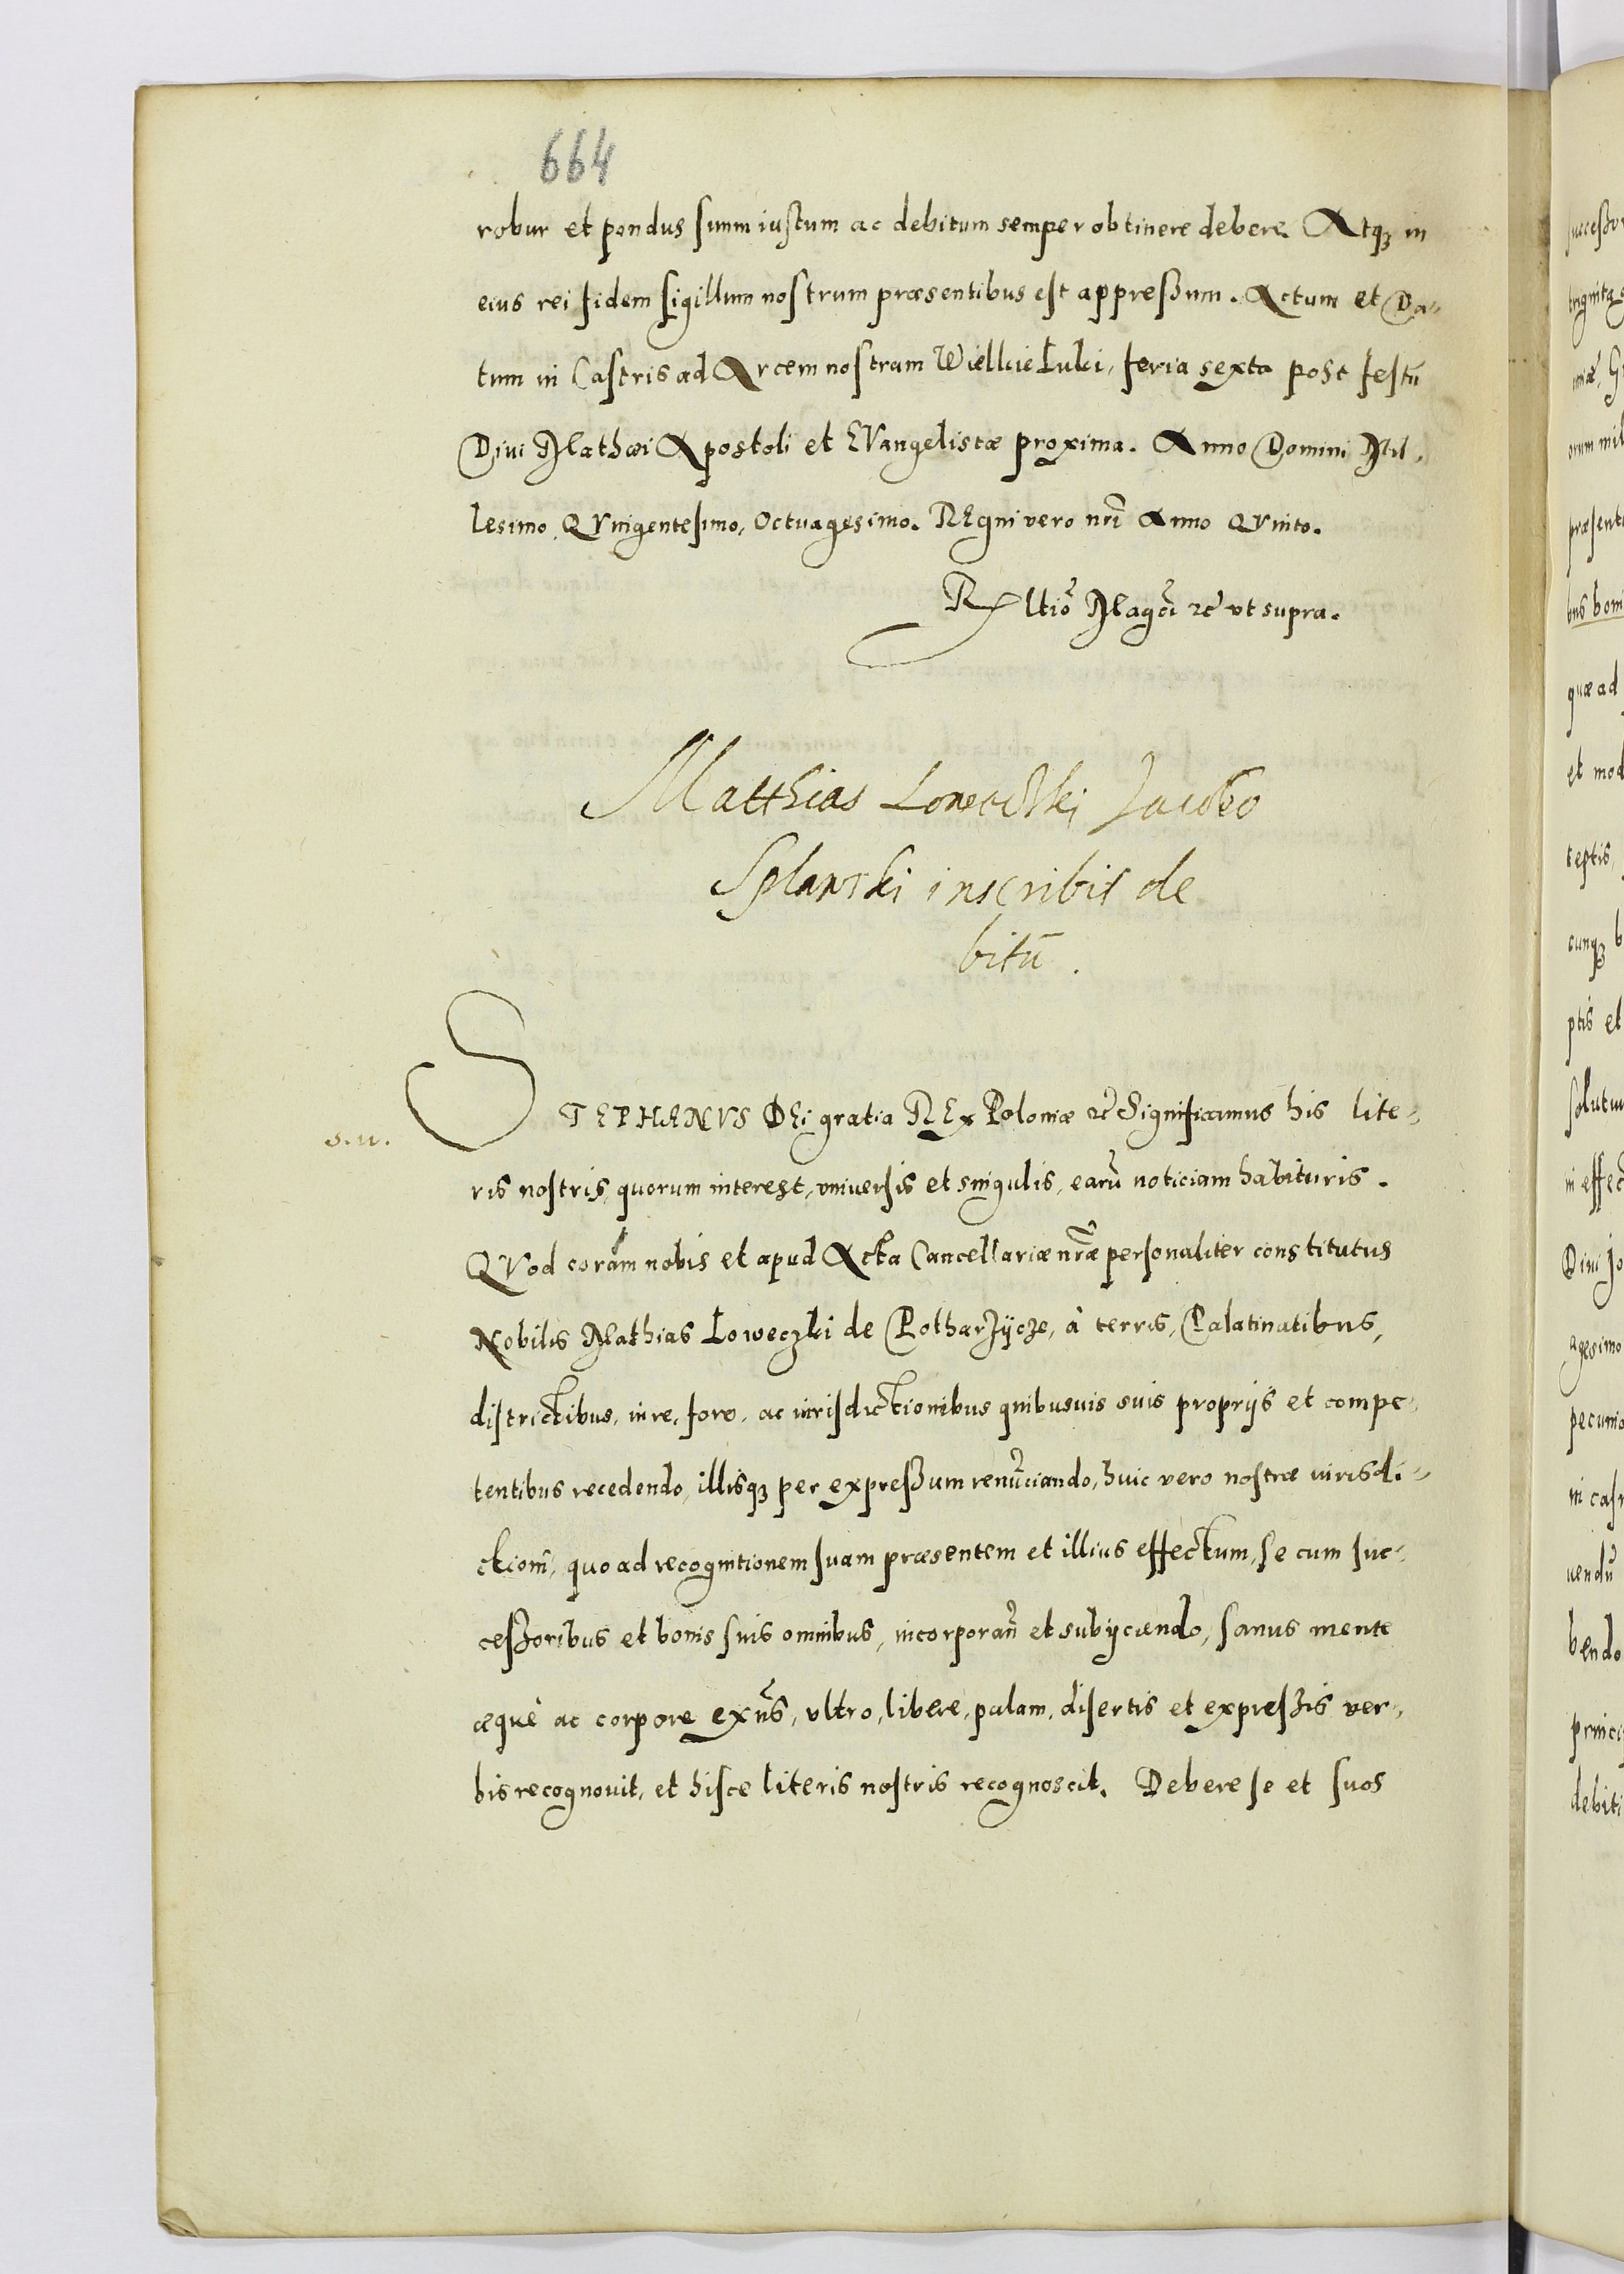 664
robur et pondus suum iustum ac debitum semper obtinere debere. Atqꝫ in
eius rei fidem sigillum nostrum præsentibus est appreßum. Actum et Da-
tum in Castris ad Arcem nostram Wielkie Luki, feria sexta post festū
Divi Mathæi Apostoli et EVangelistæ proxima. Anno Domini Mil-
lesimo, QVingentesimo, Octuagesimo. REgni vero nr̄i Anno QVinto.
Rltio Magci ꝛc̄ vt supra.
Matthias Loweczki Jacobo
Splawski inscribit de
bitū.
S.u.
STEPHANVS DEi gratia REx Poloniæ ꝛc̄ Significamus his lite-
ris nostris, quorum interest, vniversis et singulis, earū noticiam habituris.
QVod coram nobis et apud Acta Cancellariæ nr̄æ personaliter constitutus
Nobilis Mathias Loweczki de Potharzÿcze, à terris, Palatinatibus,
districtibus, iure, foro, ac iurisdictionibus quibusuis suis proprijs et compe-
tentibus recedendo, illisqꝫ per expreßum renūciando, huic vero nostræ iurisdi-
ctioni, quo ad recognitionem suam præsentem et illius effectum, se cum suc-
ceßoribus et bonis suis omnibus, incorporan̄ et subijciendo, sanus mente
æquè ac corpore exn̄s, vltro, libere, palam, disertis et expreßis ver-
bis recognovit, et hisce literis nostris recognoscit. Debere se et suos